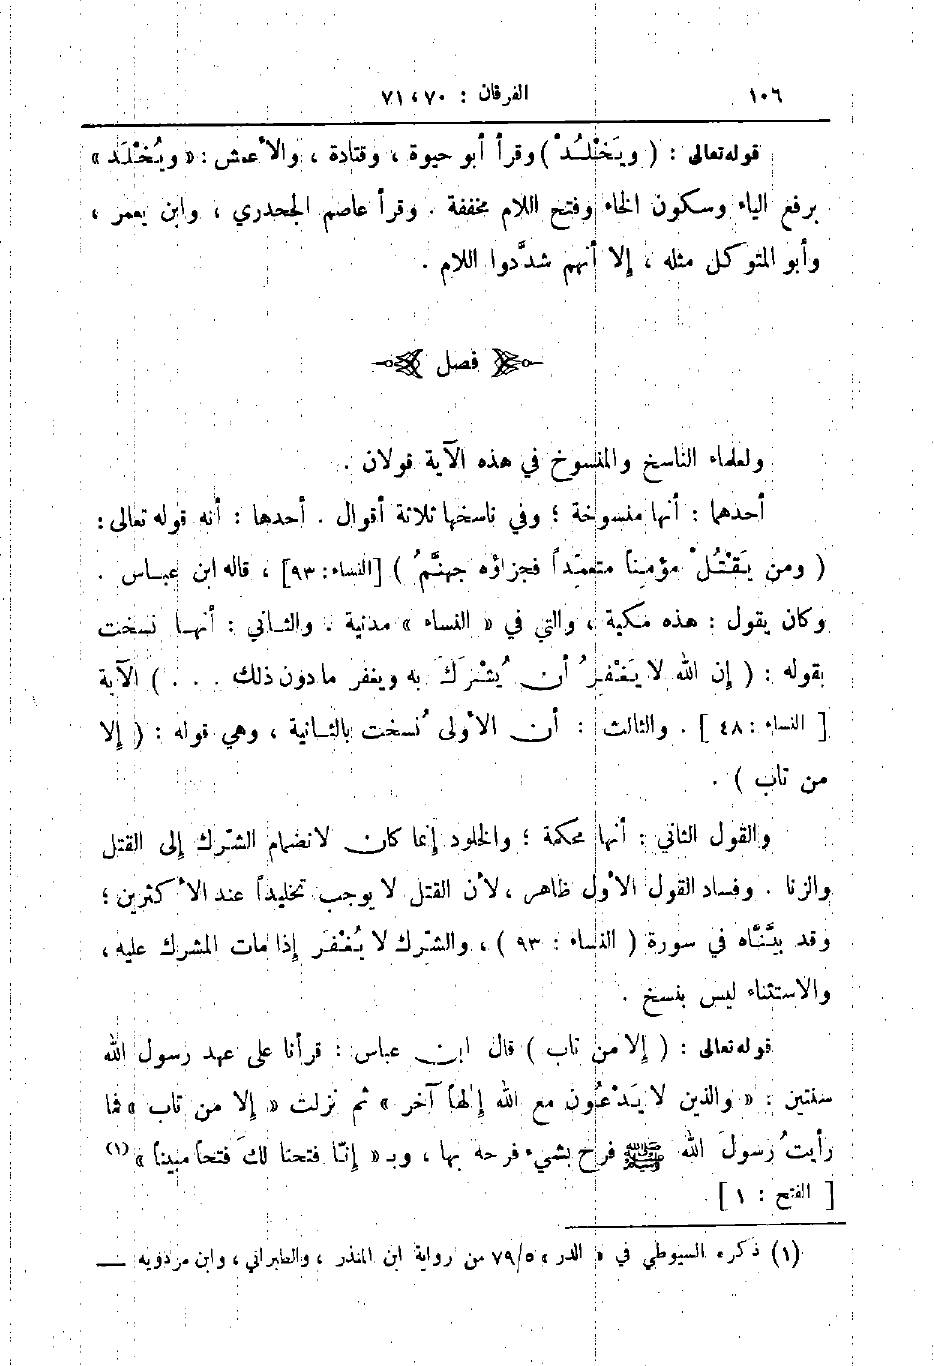 ١٠٦ الفرقان : ٧٠ ، ٧١
قوله تعالى : ( ويَخْلُدْ ) وقرأ أبو حيوة ، وقتادة ، والأعمش : « ويُخْلَد »
برفع الياء وسكون الخاء وفتح اللام مخففة . وقرأ عاصم الجحدري ، وابن يعمر ،
وأبو المتوكل مثله ، إلا أنهم شدَّدوا اللام .
فصل
ولعلماء الناسخ والمنسوخ في هذه الآية قولان .
أحدهما : أنها منسوخة ؛ وفي ناسخها ثلاثة أقوال . أحدها : أنه قوله تعالى :
( ومن يَقْتُلْ مؤمناً متعمِّداً فجزاؤه جهنَّمُ ) [النساء: ٩٣] ، قاله ابن عباس .
وكان يقول : هذه مكية ، والتي في « النساء » مدنية . والثاني : أنها نسخت
بقوله : ( إن الله لا يَغْفِرُ أن يُشْرَكَ به ويغفر ما دون ذلك . . . ) الآية
[ النساء : ٤٨ ] . والثالث : أن الأولى نُسخت بالثانية ، وهي قوله : ( إلا
من تاب ) .
والقول الثاني : أنها محكمة ؛ والخلود إنما كان لانضمام الشرك إلى القتل
والزنا . وفساد القول الأول ظاهر ، لأن القتل لا يوجب تخليداً عند الأكثرين ؛
وقد بيَّنَّاه في سورة ( النساء : ٩٣ ) ، والشرك لا يُغْفَر إذا مات المشرك عليه ،
والاستثناء ليس بنسخ .
قوله تعالى : ( إلا من تاب ) قال ابن عباس : قرأنا على عهد رسول الله
سنتين : « والذين لا يَدْعُون مع الله إلهاً آخر » ثم نزلت « إلا من تاب » فما
رأيتُ رسولَ الله ﷺ فرح بشيء فرحه بها ، وبـ « إنّا فتحنا لكَ فتحاً مبيناً » (١)
[ الفتح : ١ ] .
(١) ذكره السيوطي في « الدر » ٧٩/٥ من رواية ابن المنذر ، والطبراني ، وابن مردويه —